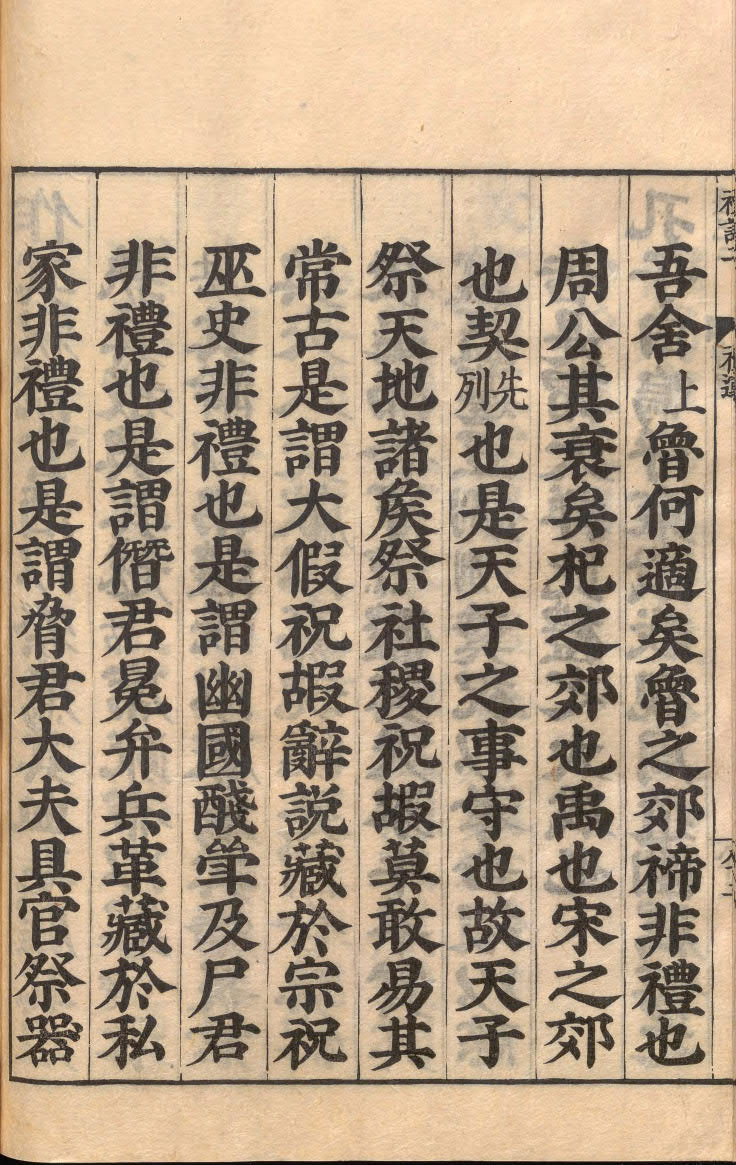 吾舍上魯何適矣魯之郊禘非禮也
周公其衰矣杞之郊也禹也宋之郊
也契先列也是天子之事守也故天子
祭天地諸矦祭社稷祝嘏莫敢易其
常古是謂大假祝嘏辭説藏於宗祝
巫史非禮也是謂幽國醆斝及尸君
非禮也是謂僭君冕弁兵革藏於私
家非禮也是謂脅君大夫具官祭器